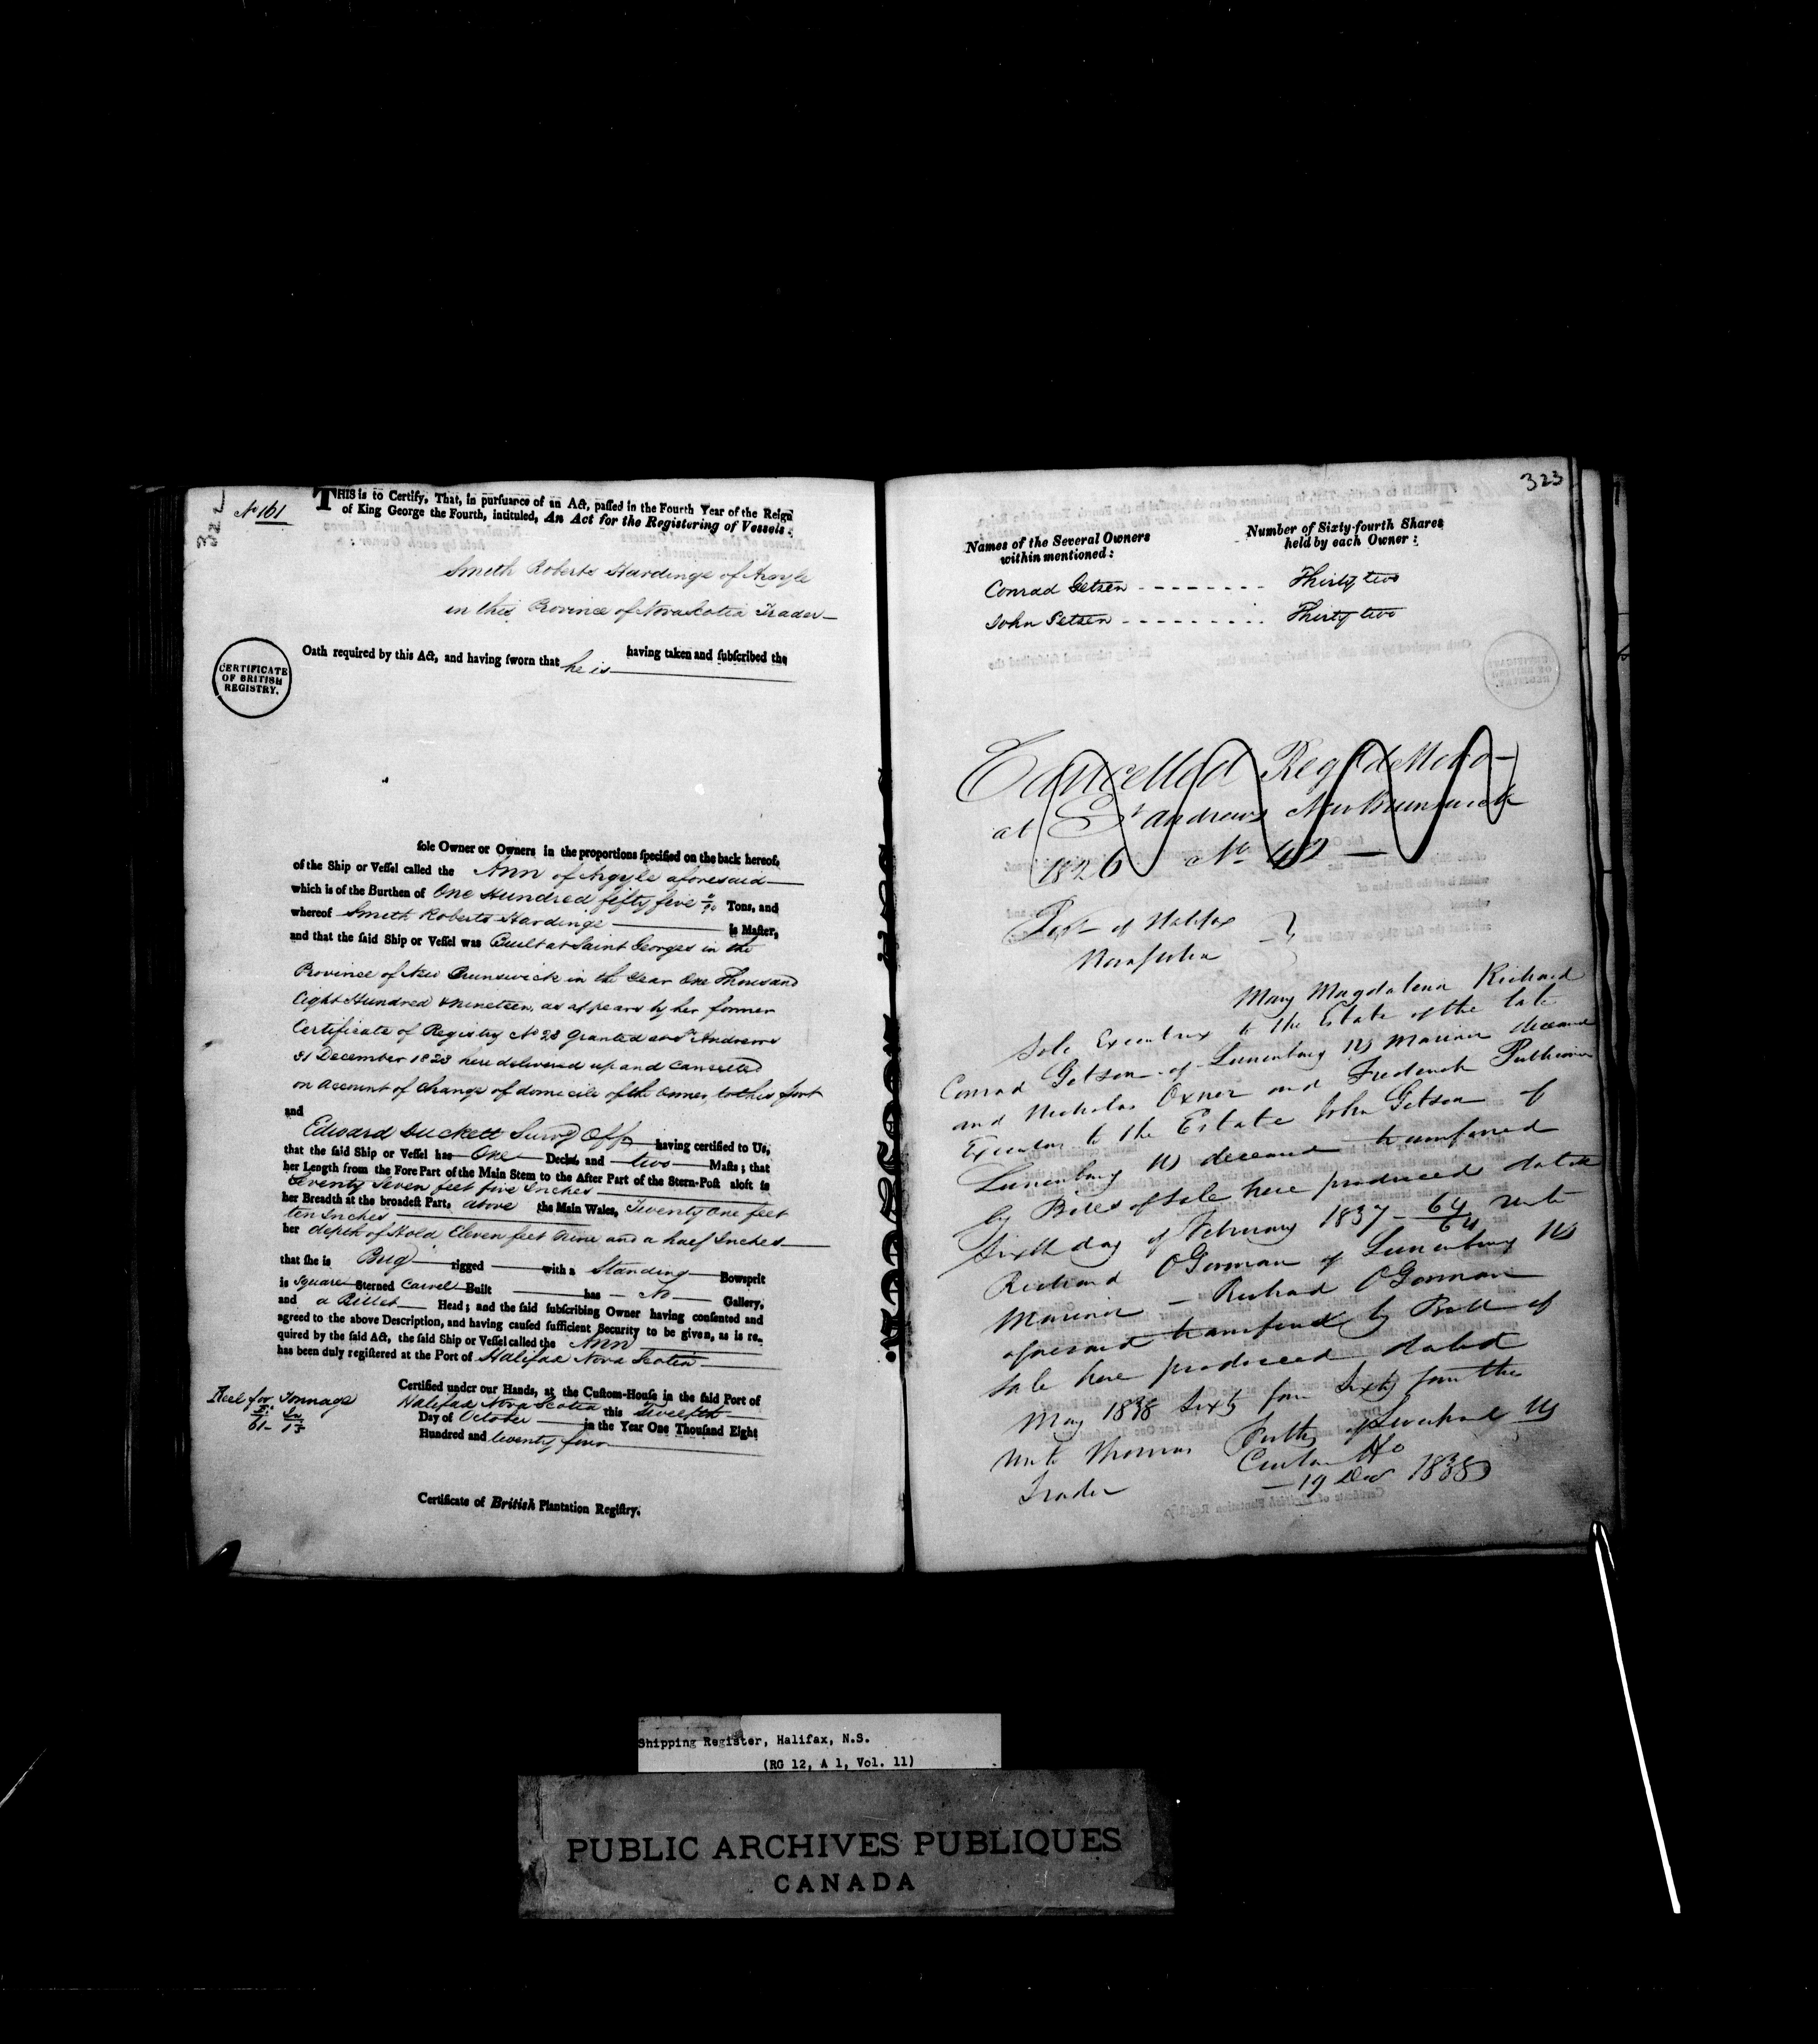 322
No 161
THIS is to Certify, That, in pursuance of an Act, passed in the Fourth Year of the Reign
of King George the Fourth, intituled, An Act for the Registering of Vessels:
Smith Roberts Hardinge of Argyle
in this Province of Nova Scotia Trader
having taken and subscribed the
Oath required by this Act, and having sworn that he is
CERTIFICATE
OF BRITISH
REGISTRY.
sole Owner or Owners in the proportions specified on the back hereof,
of the Ship or Vessel called the Ann of Argyle aforesaid
which is of the Burthen of One Hundred fifty five Tons, and
whereof Smith Roberts Hardinge is Master,
and that the said Ship or Vessel was Built at Saint Georges in the
Province of New Brunswick in the Year One Thousand
Eight Hundred & nineteen, as appears by her former
Certificate of Registry No 28 Granted at St Andrews
31 December 1823 here delivered up and Cancelled
on Account of Change of domicile of the Owner to this port
and
Edward Duckett Survg Offr having certified to Us,
that the said Ship or Vessel has One Deck, and two Masts; that
her Length from the Fore Part of the Main Stem to the After Part of the Stern-Post aloft is
Seventy Seven feet five Inches
her Breadth at the broadest Part, above the Main Wales, Twenty One feet
ten Inches
her depth of Hold Eleven feet Nine and a half Inches
that she is Brig rigged with a Standing Bowsprit
is Square Sterned Carvel Built has No Gallery,
and a Billet Head; and the said subscribing Owner having consented and
agreed to the above Description, and having caused sufficient Security to be given, as is re-
quired by the said Act, the said Ship or Vessel called the Ann
has been duly registered at the Port of Halifax Nova Scotia
Certified under our Hands, at the Custom-House in the said Port of
Halifax Nova Scotia this Twelfth
Day of October in the Year One Thousand Eight
Hundred and twenty four
Keel for Tonnage
61
Certificate of British Plantation Registry.
323
Names of the Several Owners
within mentioned:
Number of Sixty-fourth Shares
held by each Owner:
Conrad Getsen - - - - - - - - Thirty two
John Getsen - - - - - - - - - Thirty two
Cancelled Regd de Novo
at St Andrews New Brunswick
1826 No 42
Port of Halifax
Nova Scotia
Mary Magdalena Richard
Sole Executrix to the Estate of the late
Conrad Getson of Lunenburg NS Mariner deceased
and Nicholas Oxner and Frederick
Executors to the Estate John Getson of
Lunenburg NS deceased transferred
by Bills of Sale here produced dated
Sixth day of February 1837 64/64 unto
Richard OGorman of Lunenburg NS
Mariner - Richard OGorman
aforesaid transferred by Bill of
Sale here produced dated
May 1838 Sixty four Sixty fourths
unto Thomas of Liverpool NS
Trader Custom Ho
19 Decr 1838
Shipping Register, Halifax, N.S.
(RG 12, A 1, Vol. 11)
PUBLIC ARCHIVES PUBLIQUES
CANADA